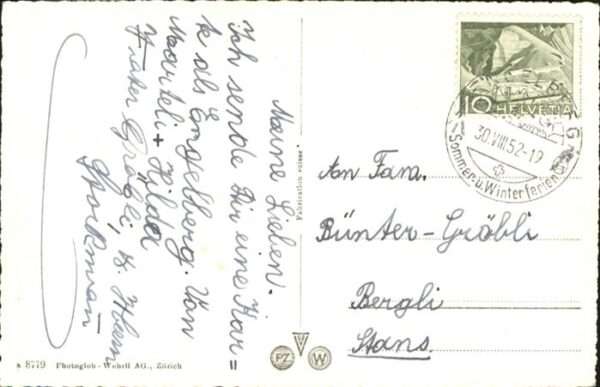 Meine Lieben.
Ich sende Dir eine Kar=
te als Engelberg. Von
Marteli + Hilda
Frater Gröbli, 
Stockmann
Fabrication suisse
8779 Photoglob-Wehrli AG., Zürich
PZ W
10 HELVETIA
30.VIII.52-19
Sommer- u. Winterferien
An Fam.
Bünter-Gröbli
Bergli
Stans.